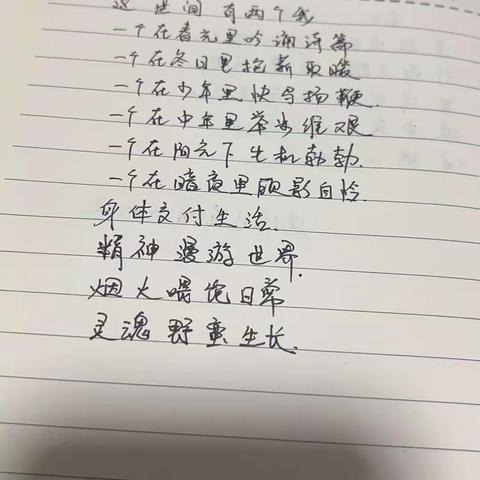 这世间有两个我
一个在春光里吟诵诗篇
一个在冬日里抱薪取暖
一个在少年里快马扬鞭.
一个在中年里举步维艰
一个在阳光下生机勃勃.
一个在暗夜里顾影自怜.
身体交付生活.
精神漫游世界.
烟火喂饱日常
灵魂野蛮生长.